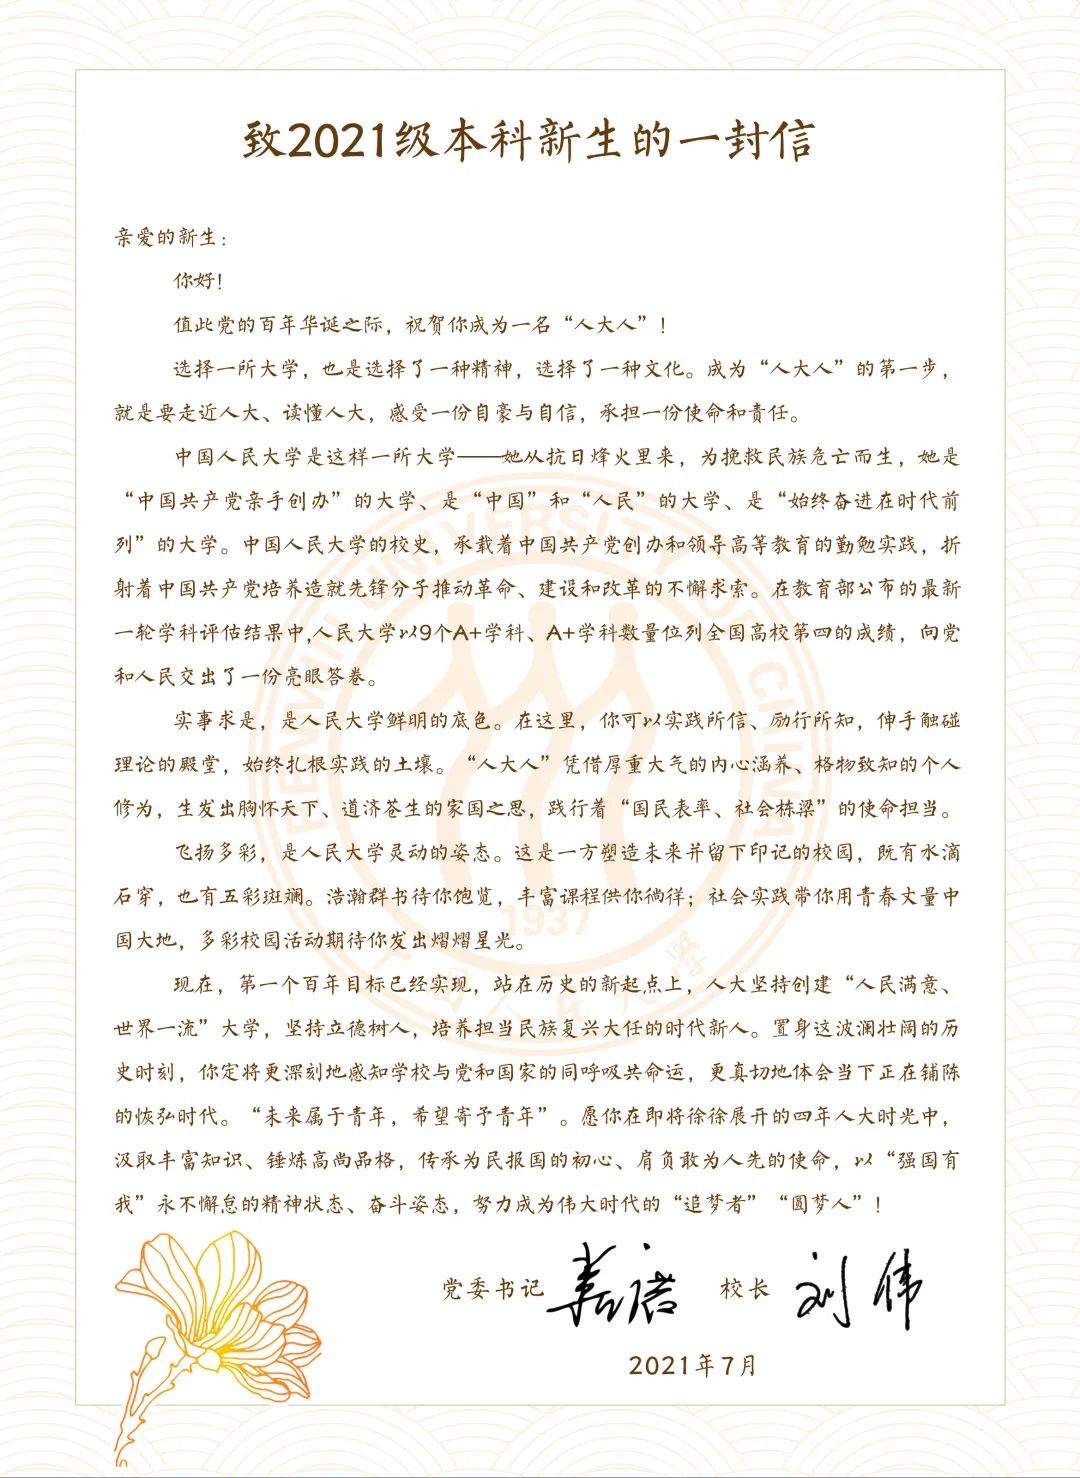 致2021级本科新生的一封信
亲爱的新生：
你好！
值此党的百年华诞之际，祝贺你成为一名“人大人”！
选择一所大学，也是选择了一种精神，选择了一种文化。成为“人大人”的第一步，
就是要走近人大、读懂人大，感受一份自豪与自信，承担一份使命和责任。
中国人民大学是这样一所大学——她从抗日烽火里来，为挽救民族危亡而生，她是
“中国共产党亲手创办”的大学、是“中国”和“人民”的大学、是“始终奋进在时代前
列”的大学。中国人民大学的校史，承载着中国共产党创办和领导高等教育的勤勉实践，折
射着中国共产党培养造就先锋分子推动革命、建设和改革的不懈求索。在教育部公布的最新
一轮学科评估结果中,人民大学以9个A+学科、A+学科数量位列全国高校第四的成绩，向党
和人民交出了一份亮眼答卷。
实事求是，是人民大学鲜明的底色。在这里，你可以实践所信、励行所知，伸手触碰
理论的殿堂，始终扎根实践的土壤。“人大人”凭借厚重大气的内心涵养、格物致知的个人
修为，生发出胸怀天下、道济苍生的家国之思，践行着“国民表率、社会栋梁”的使命担当。
飞扬多彩，是人民大学灵动的姿态。这是一方塑造未来并留下印记的校园，既有水滴
石穿，也有五彩斑斓。浩瀚群书待你饱览，丰富课程供你徜徉；社会实践带你用青春丈量中
国大地，多彩校园活动期待你发出熠熠星光。
现在，第一个百年目标已经实现，站在历史的新起点上，人大坚持创建“人民满意、
世界一流”大学，坚持立德树人，培养担当民族复兴大任的时代新人。置身这波澜壮阔的历
史时刻，你定将更深刻地感知学校与党和国家的同呼吸共命运，更真切地体会当下正在铺陈
的恢弘时代。“未来属于青年，希望寄予青年”。愿你在即将徐徐展开的四年人大时光中，
汲取丰富知识、锤炼高尚品格，传承为民报国的初心、肩负敢为人先的使命，以“强国有
我”永不懈怠的精神状态、奋斗姿态，努力成为伟大时代的“追梦者”“圆梦人”！
党委书记 靳诺 校长 刘伟
2021年7月
RENMIN UNIVERSITY OF CHINA
1937